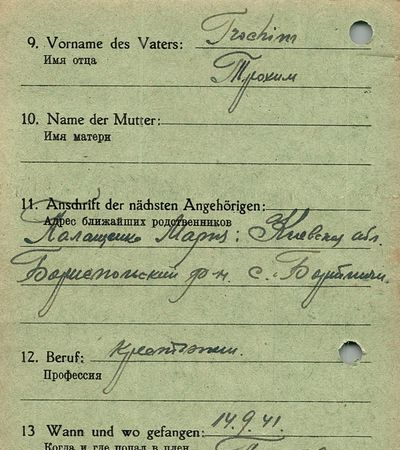 9. Vorname des Vaters: Trochim
Имя отца
Трохим
10. Name der Mutter:
Имя матери
11. Anschrift der nächsten Angehörigen:
Адрес ближайших родственников
Мария: Киевская обл.
Бориспольский р-н с.
12. Beruf: крестьянин.
Профессия
13 Wann und wo gefangen: 14.9.41.
Когда и где попал в плен